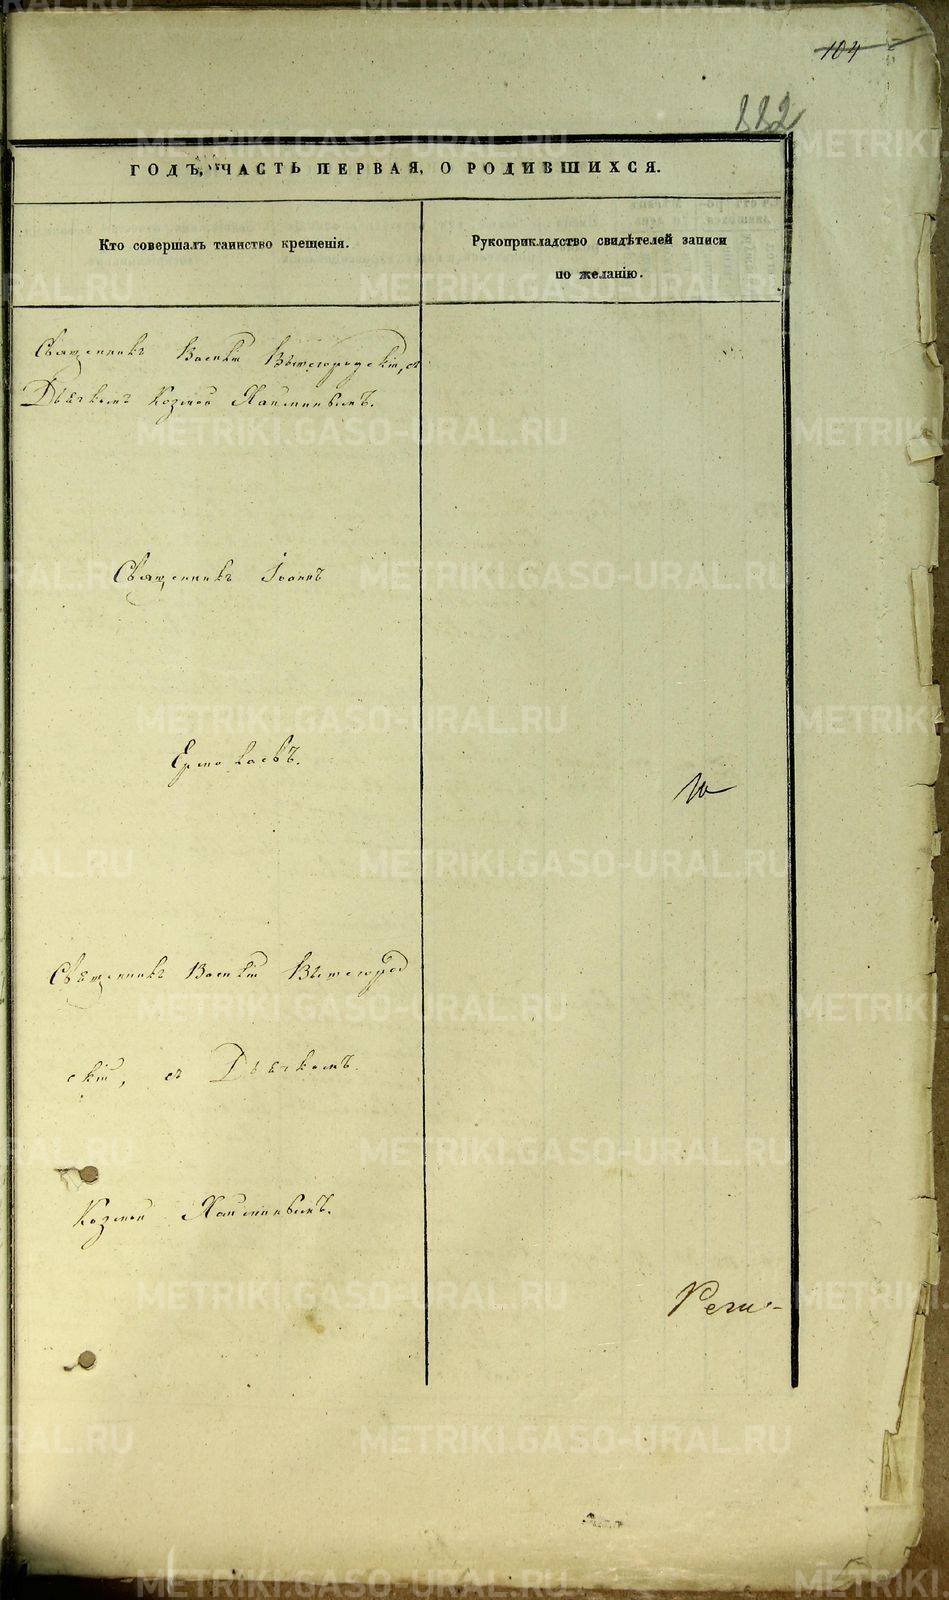 104
112
ГОДЪ, ЧАСТЬ ПЕРВАЯ, О РОДИВШИХСЯ.
Кто совершалъ таинство крещенія.
Рукоприкладство свидѣтелей записи
по желанію.
Священникъ Василій Вышегородскій, съ
Дьячкомъ Козмой
Священникъ Іоаннъ
Ермолаевъ.
Священникъ Василій Вышегород
скій, съ Дьячкомъ
Козмой
METRIKI.GASO-URAL.RU